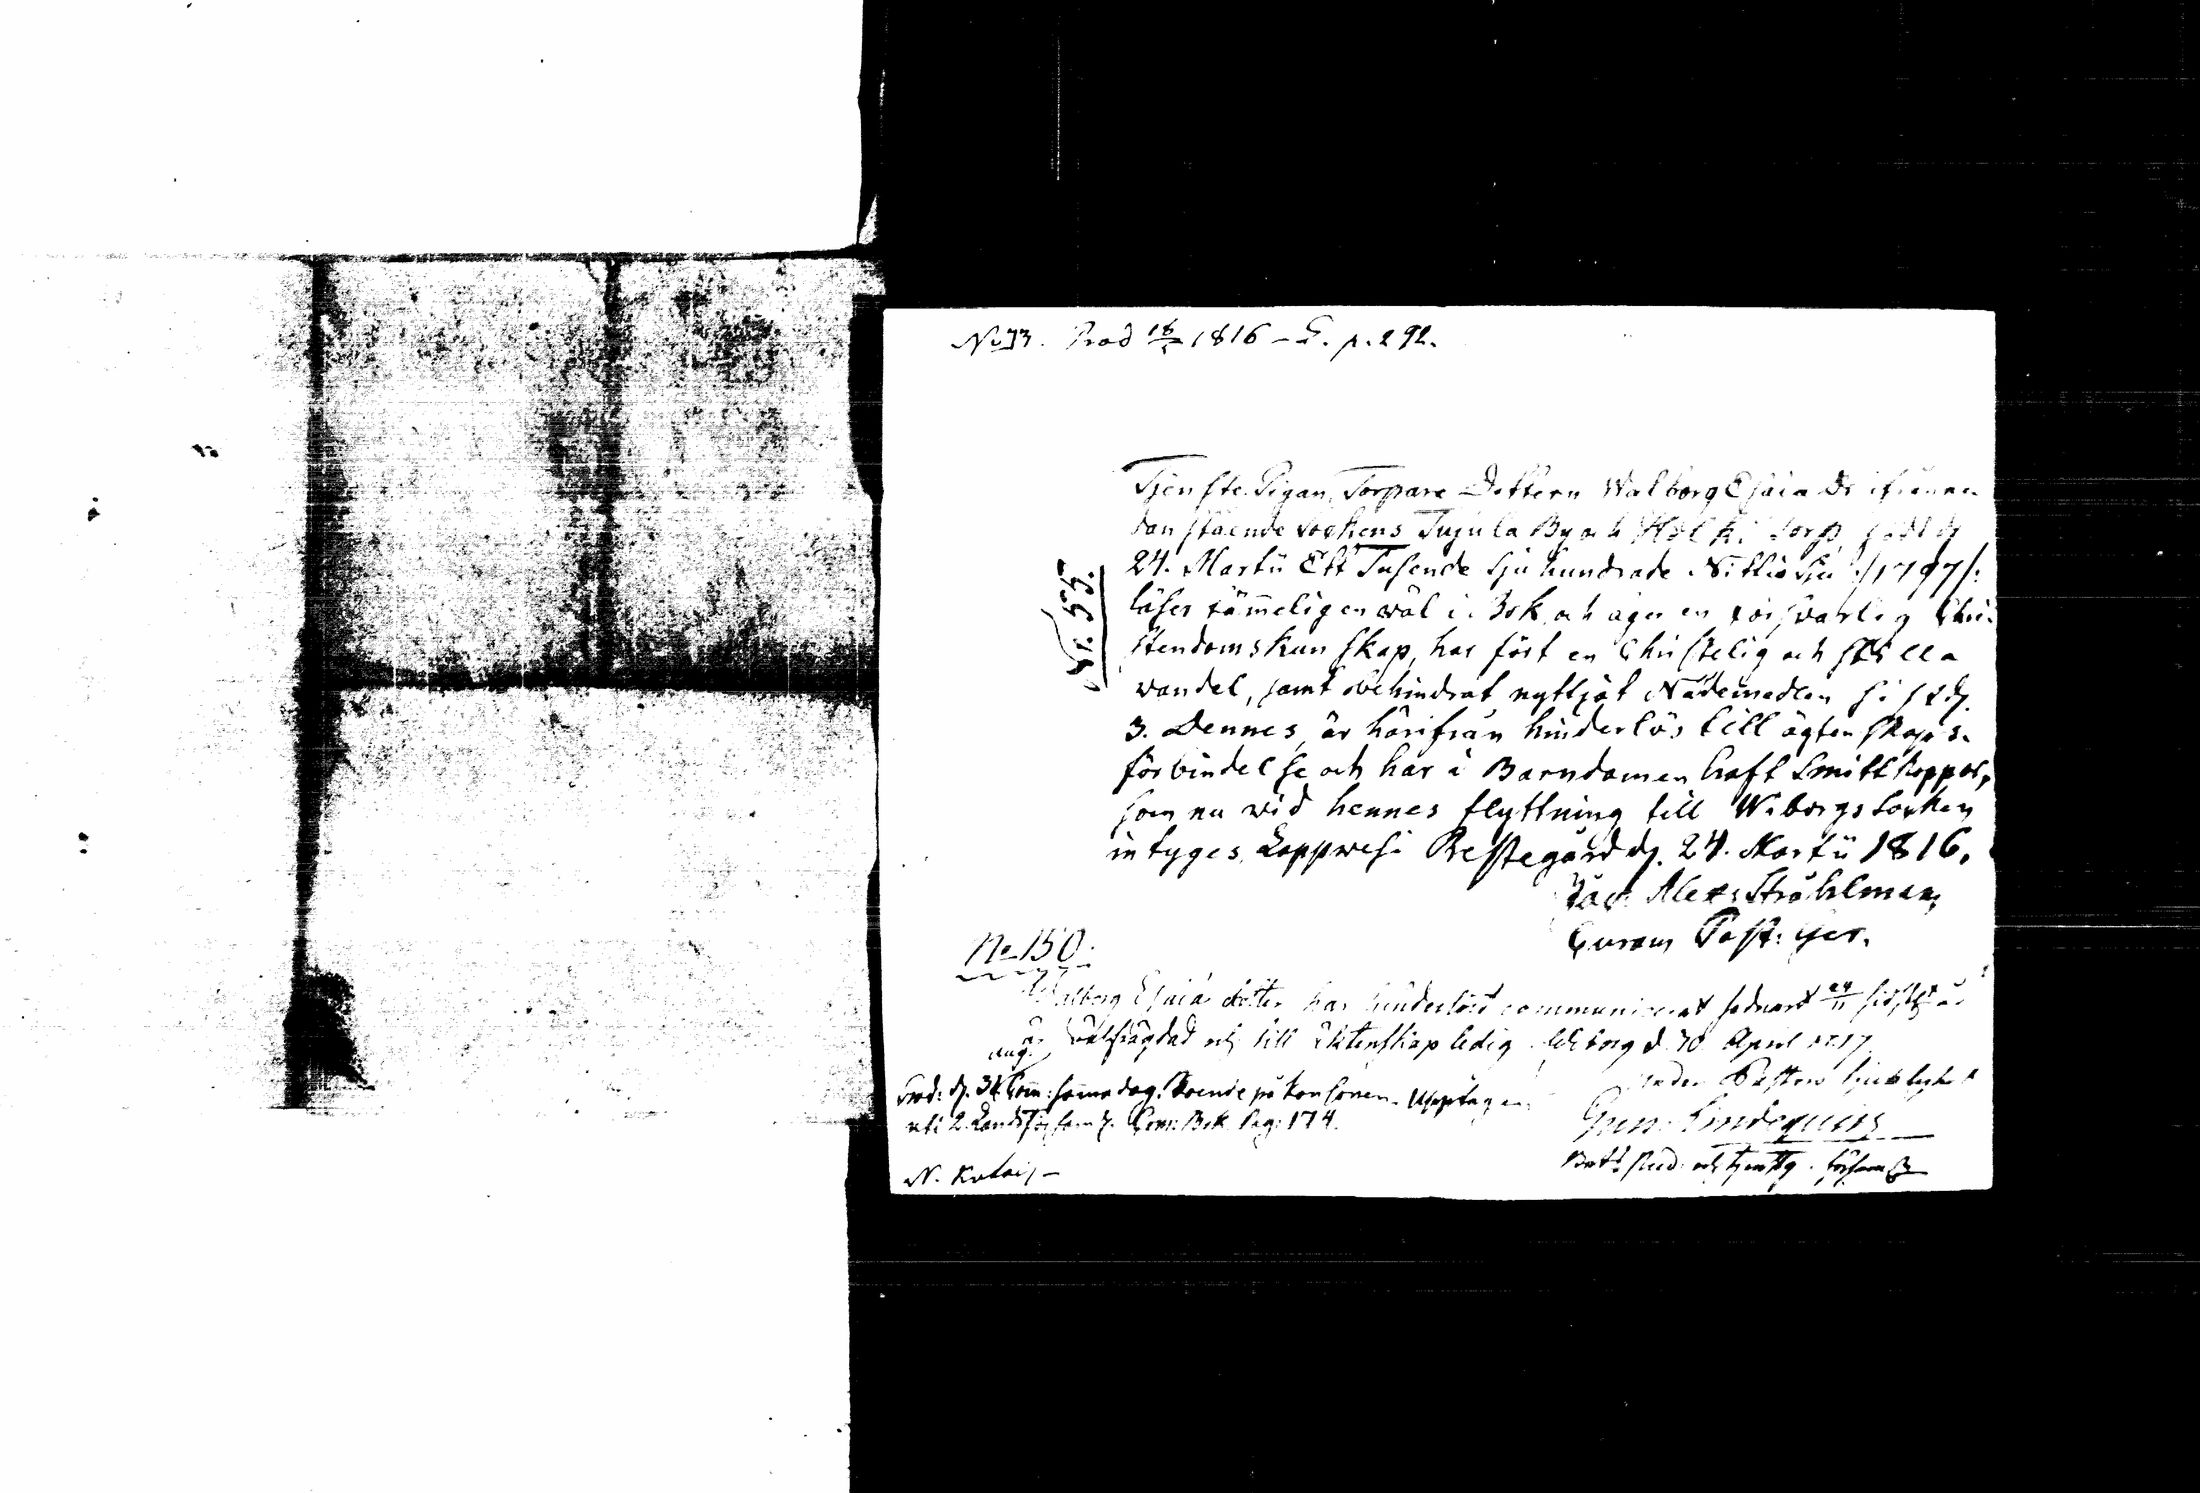 No 33. Prod 16/5 1816 – G. p. 292.
Tjenste Pigan, Torpare Dottern Walborg Esaia Dr ifrån nedan
stående sockens Tujula By och Torp, född d.
24. Martii Ett Tusende Sju hundrade Nittio Sju :/1797/:
läser tämmeligen wäl i Bok, och äger en försvarlig Chri-
stendoms kunskap, har fört en Christelig och stilla
wandel, samt obehindrat nyttjat Nådemedlen sist d.
3. Dennes, är härifrån hinderlös till ägtenskaps-
förbindelse och har i Barndomen haft Smittkoppor,
som nu wid hennes flyttning till Wiborgs Socken
intyges, Lappwesi Prestegård d. 24. Martii 1816.
Alex: Stråhlman,
Curam Past: Ger.
Nr. 53.
No 150.
Walborg Esaiæ dotter har hinderlöst communicerat sednast 24/11 sistl. år
är wälfrägdad och till äktenskap ledig. Wiborg d. 30 April 1817
under Pastors sjuklighet
Gust. Lindequist
aug.
Prod: d. 31. Com: samma dag. Boende på Upptagen
uti 2. Lands Com: Bok Pag: 174.